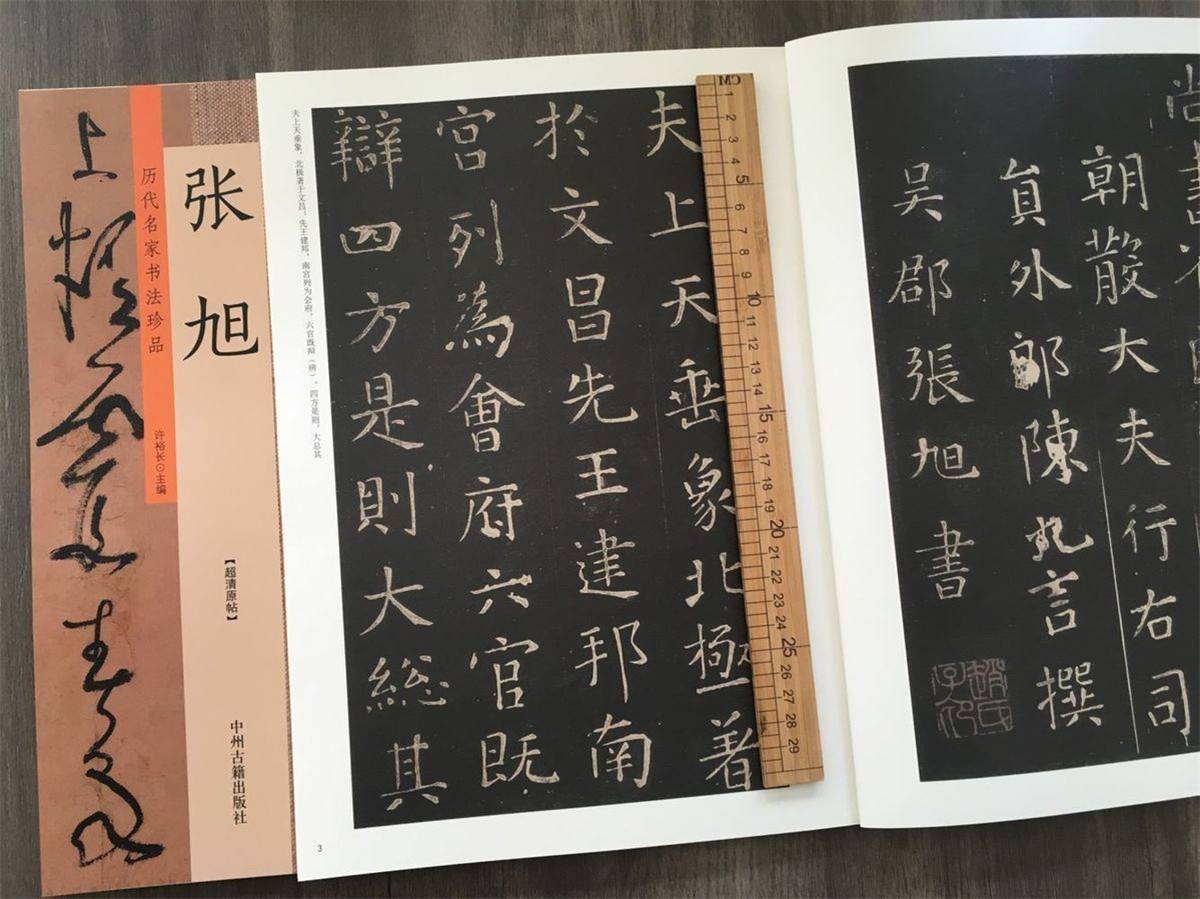 张旭
历代名家书法珍品
许裕长⊙主编
【超清原帖】
中州古籍出版社
夫上天垂象，北极著于文昌；先王建邦，南宫列为会府。六官既辩（辨），四方是则，大总其
夫上天垂象北極著
於文昌先王建邦南
宮列為會府六官既
辯四方是則大總其
3
CM
1 2 3 4 5 6 7 8 9 10 11 12 13 14 15 16 17 18 19 20 21 22 23 24 25 26 27 28 29
尚書
朝散大夫行右司
員外郎陳九言撰
吴郡張旭書